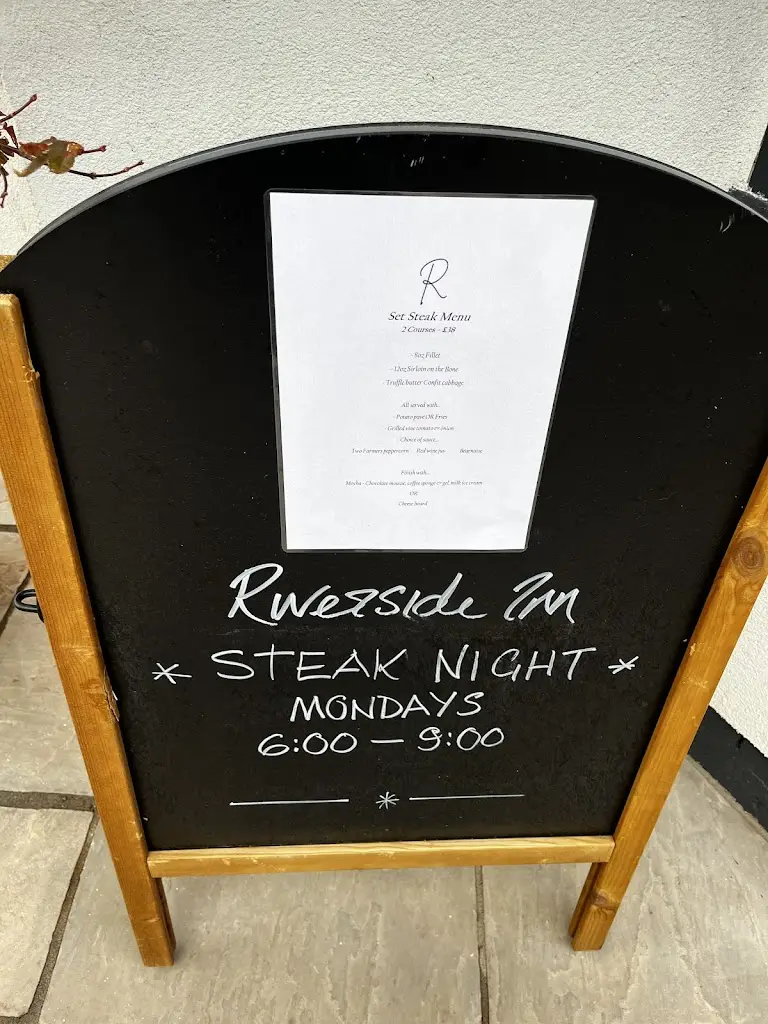 R
Set Steak Menu
2 Courses - £38
- 8oz Fillet
- 12oz Sirloin on the Bone
- Truffle butter Confit cabbage
All served with...
- Potato pave OR Fries
- Grilled vine tomato & onion
- Choice of sauce...
Two Farmers peppercorn Red wine jus Bearnaise
Finish with...
Mocha - Chocolate mousse, coffee sponge & gel, milk ice cream
OR
Cheese board
Riverside Inn
* STEAK NIGHT *
MONDAYS
6:00 – 9:00